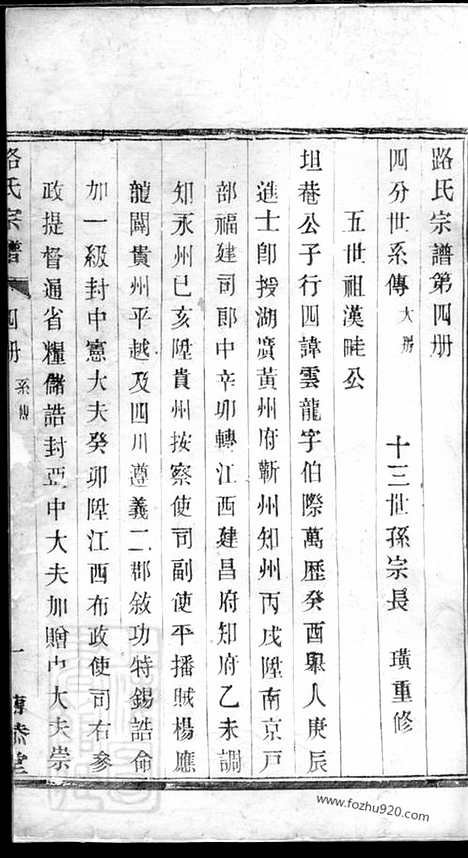 路氏宗譜第四册
四分世系傳 大房 十三世孫宗長 璜重修
五世祖漢畦公
坦巷公子行四諱雲龍字伯際萬歷癸酉舉人庚辰
進士卽授湖廣黃州府蘄州知州丙戌陞南京戸
部福建司郎中辛卯轉江西建昌府知府乙未調
知永州已亥陞貴州按察使司副使平播賊楊應
龍闢貴州平越及四川遵義二郡敘功特錫誥命
加一級封中憲大夫癸卯陞江西布政使司右參
政提督通省糧儲誥封亞中大夫加贈中大夫崇
路氏宗譜 四册 系傳 一
www.fozhu920.com